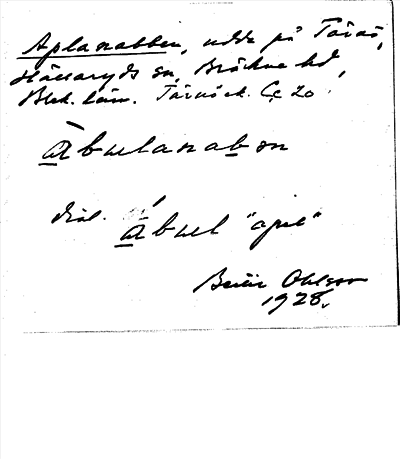 Aplanabben, udde på Tärnö,
Hällaryds sn, Bräkne hd,
Blek. län. Tärnö ek. Cc 20.
àbulanabən
dial. ábul "apel"
Bertil Ohlson
1928.